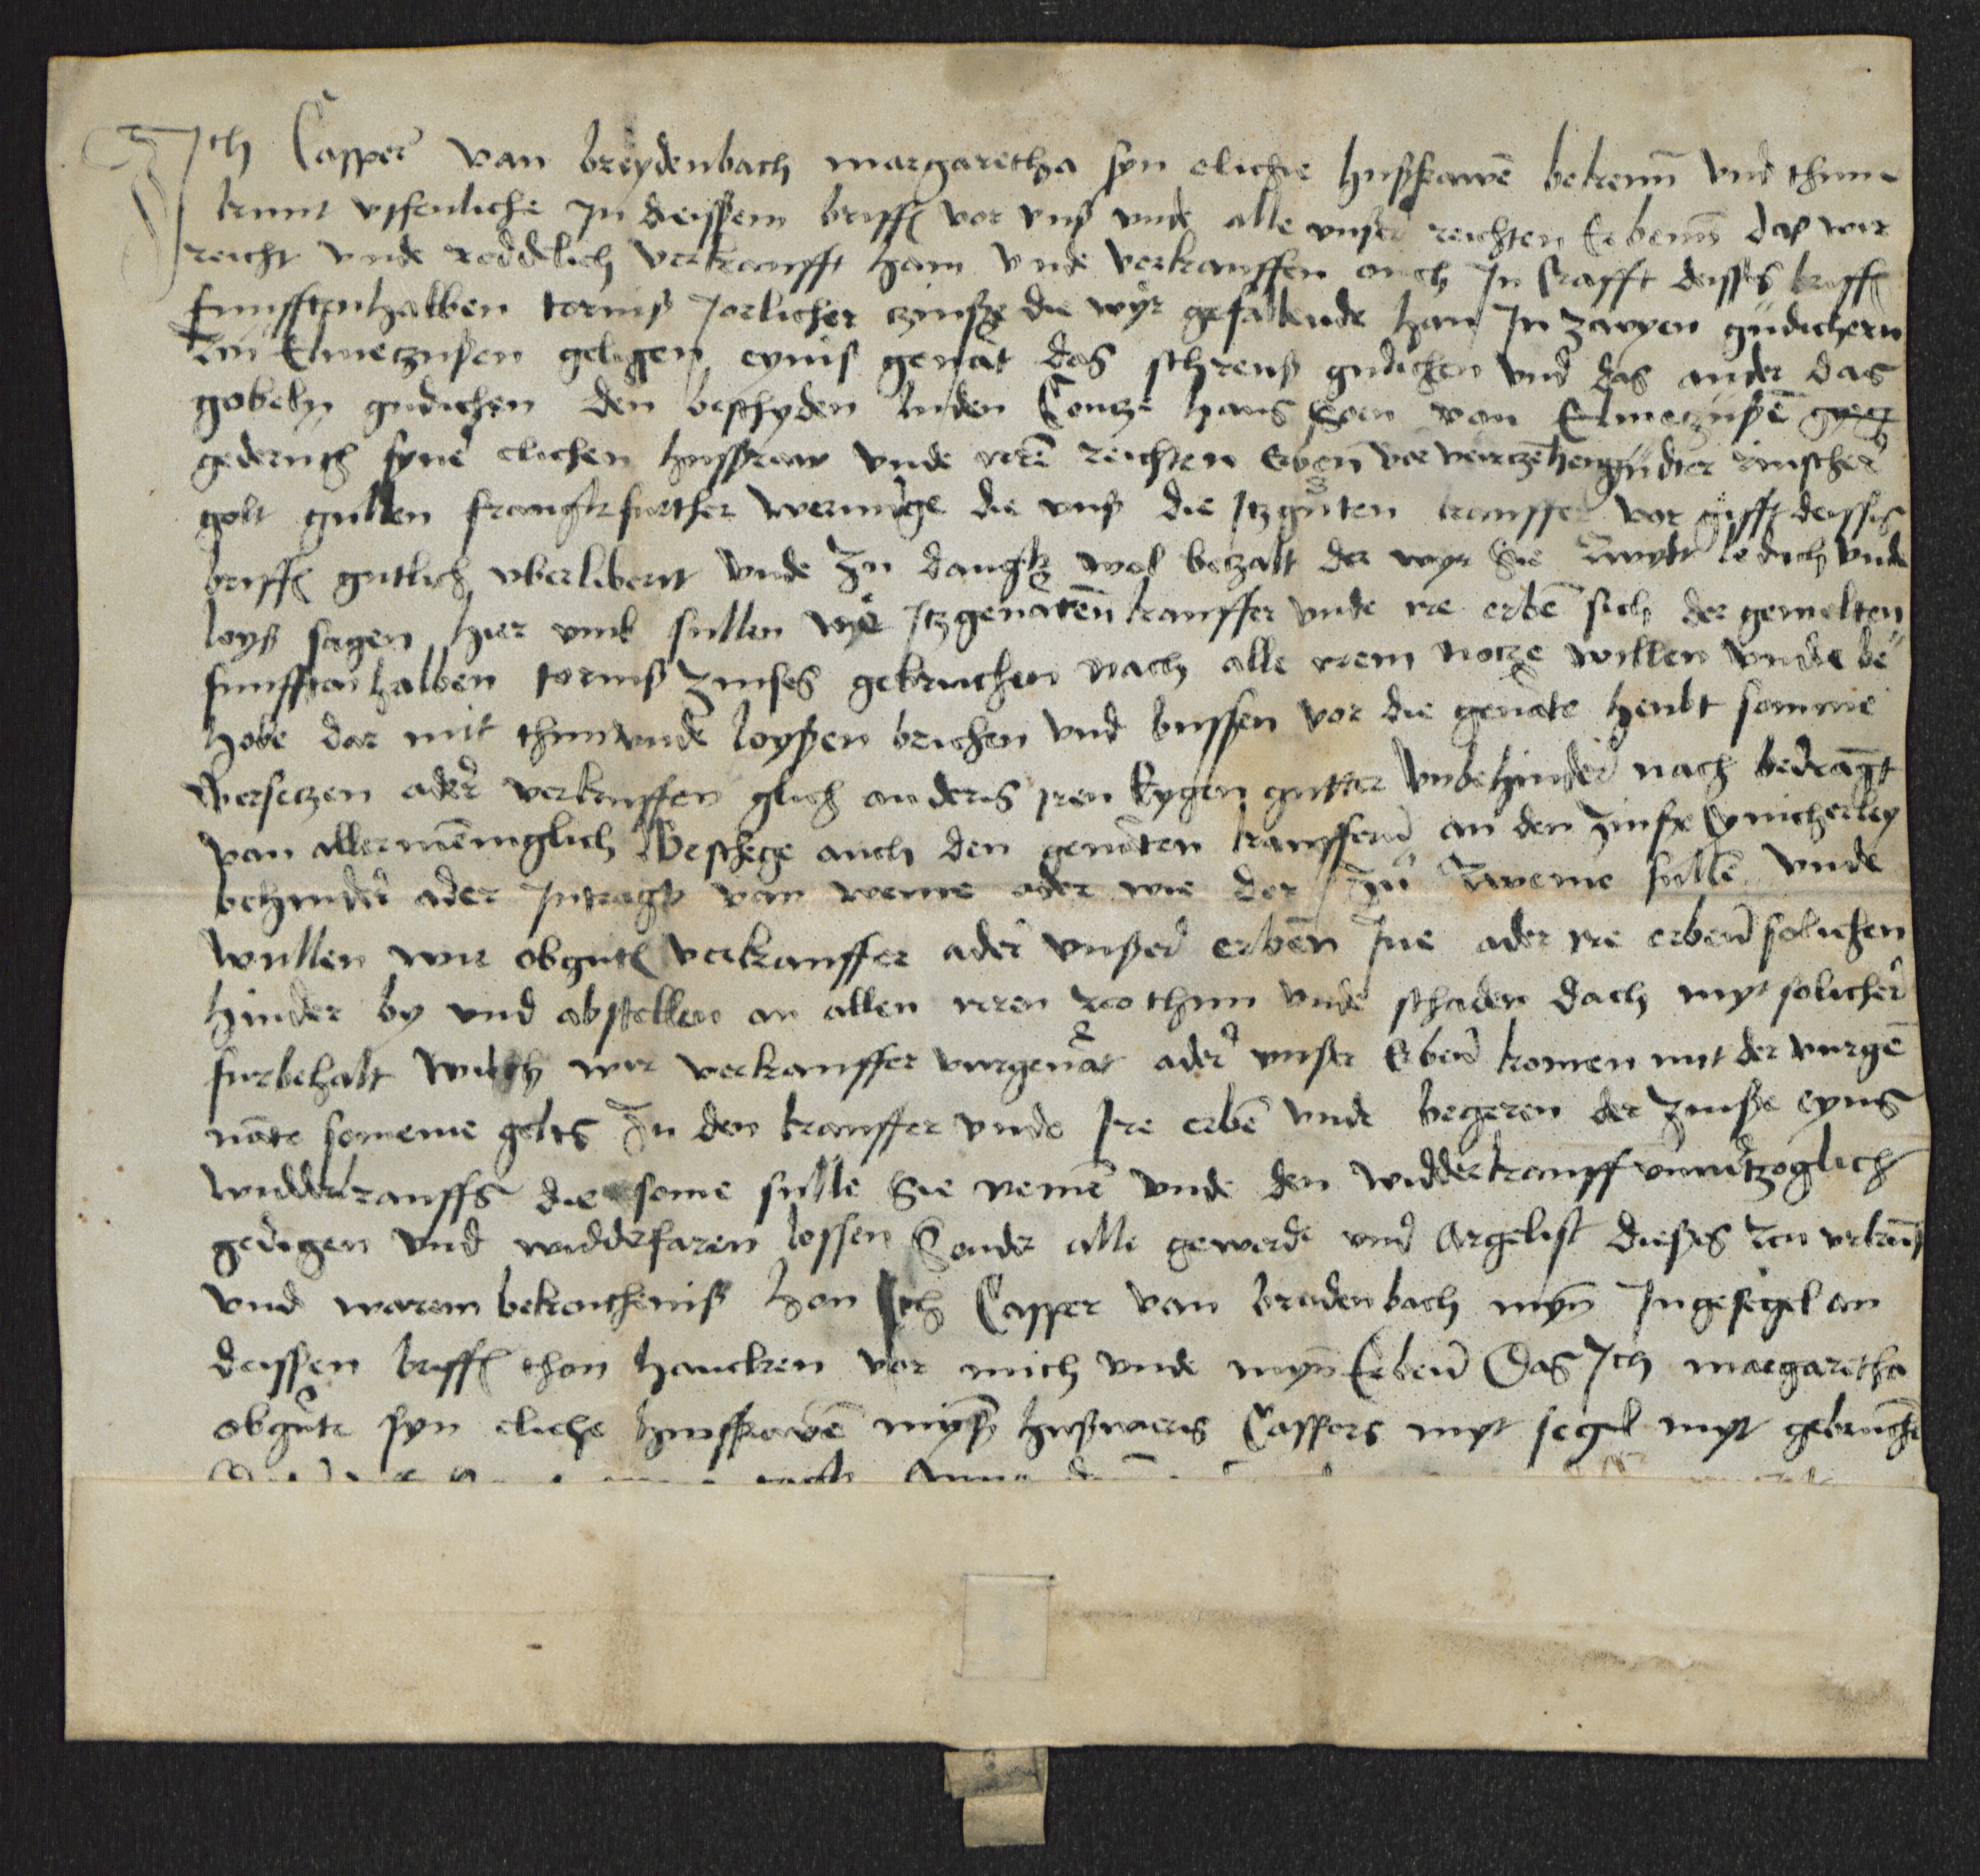 Ich Casper van breydenbach margaretha syn eliche hußfrawē bekenn̄ vnd thun
kunt vffenliche In deissem briffe vor vnß vnde alle vnser reichten Erbenn daß wir
reicht vnde reddelich verkaufft han vnde verkauffen auch In krafft deisses briffs
funfftenhalben tornß Jorlicher zinsze die wyr gefallende han In zweyen gudichern
zu Elmetzusen gelegen eynß genāt das schrenß gudichen vnd das ander das
gobeln gudichen den bescheyden luden Contze hans son van Elmetzusē
gederuth syner elichen hußfraw vnde eren reichten Erben vor veirczehen gudter rinscher
golt gulden franckfurther werunge die vnß die Itzgnten kauffer vor gifft deisses
briffs gutlich vberlibert vnde zu dangk wol bezalt der wyr sie qwydt ledich vnde
loyß sagen hier vmb sullen dye Itzgenaten kauffer vnde ire erbē sich der gemelten
funfftenhalben tornß zinses gebruchen nach alle irem notze willen vnde be
hobe dar mit thun vnde loyßen brichen vnd bussen vor die genāte heubt somme
versetzen ader verkauffen glich anders iren Eygen gutter vnbehinder nach bedrāgt
van allermēniglich Beschege auch den genāten kauffern an den zinße Eynicherley
behinder ader Intragk van weme oder wie der zu qweme sullē vnde
wullen wir obgntē verkauffer ader vnßer erben Ine ader ire erben solichen
hinder by vnd abstellen an allen iren wethun vnde schaden Dach myt solicher
furbehalt wilch wir verkauffer vurgenāt ader vnser Erben komen mit der vurge
nāte somme gelts zu den kauffer vnde Ire erbē vnde begeren der zinße eyns
widderkauffs die some sulle sie nemē vnde den widderkauff vnvertzoglich
gedigen vnd widderfaren lossen Sonder alle geverde vnd Argelist dießes zcu vrkunt
vnd warem bekentheniß hon Ich Casper van bredenbach myn Ingesigel an
deissen briff thon hencken vor mich vnde myn Erben Das Ich margaretha
obgnte syn eliche hußfrawē myß hußwerts Caspers myt segel myt gebruche